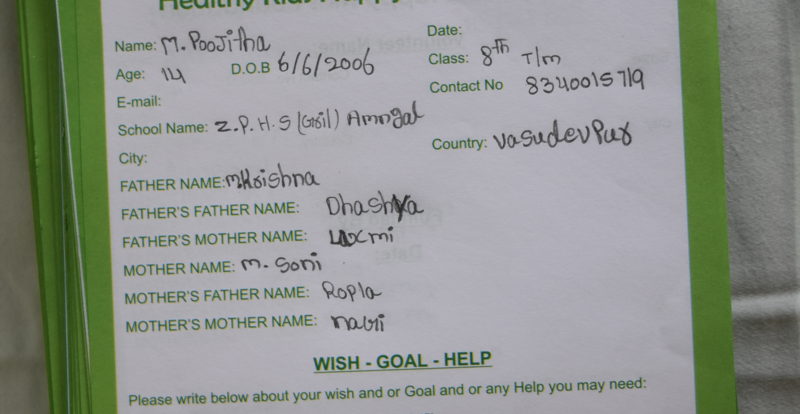 Healthy Kids Happy
Name: M. Poojitha
Date:
Age: 14 D.O.B 6/6/2006 Class: 8th T/m
E-mail: Contact No 8340015719
School Name: Z.P.H.S (Groil) Amngal
City: Country: Vasudevpur
FATHER NAME: M Krishna
FATHER'S FATHER NAME: Dhashya
FATHER'S MOTHER NAME: Laxmi
MOTHER NAME: M. Soni
MOTHER'S FATHER NAME: Ropla
MOTHER'S MOTHER NAME:
WISH - GOAL - HELP
Please write below about your wish and or Goal and or any Help you may need: